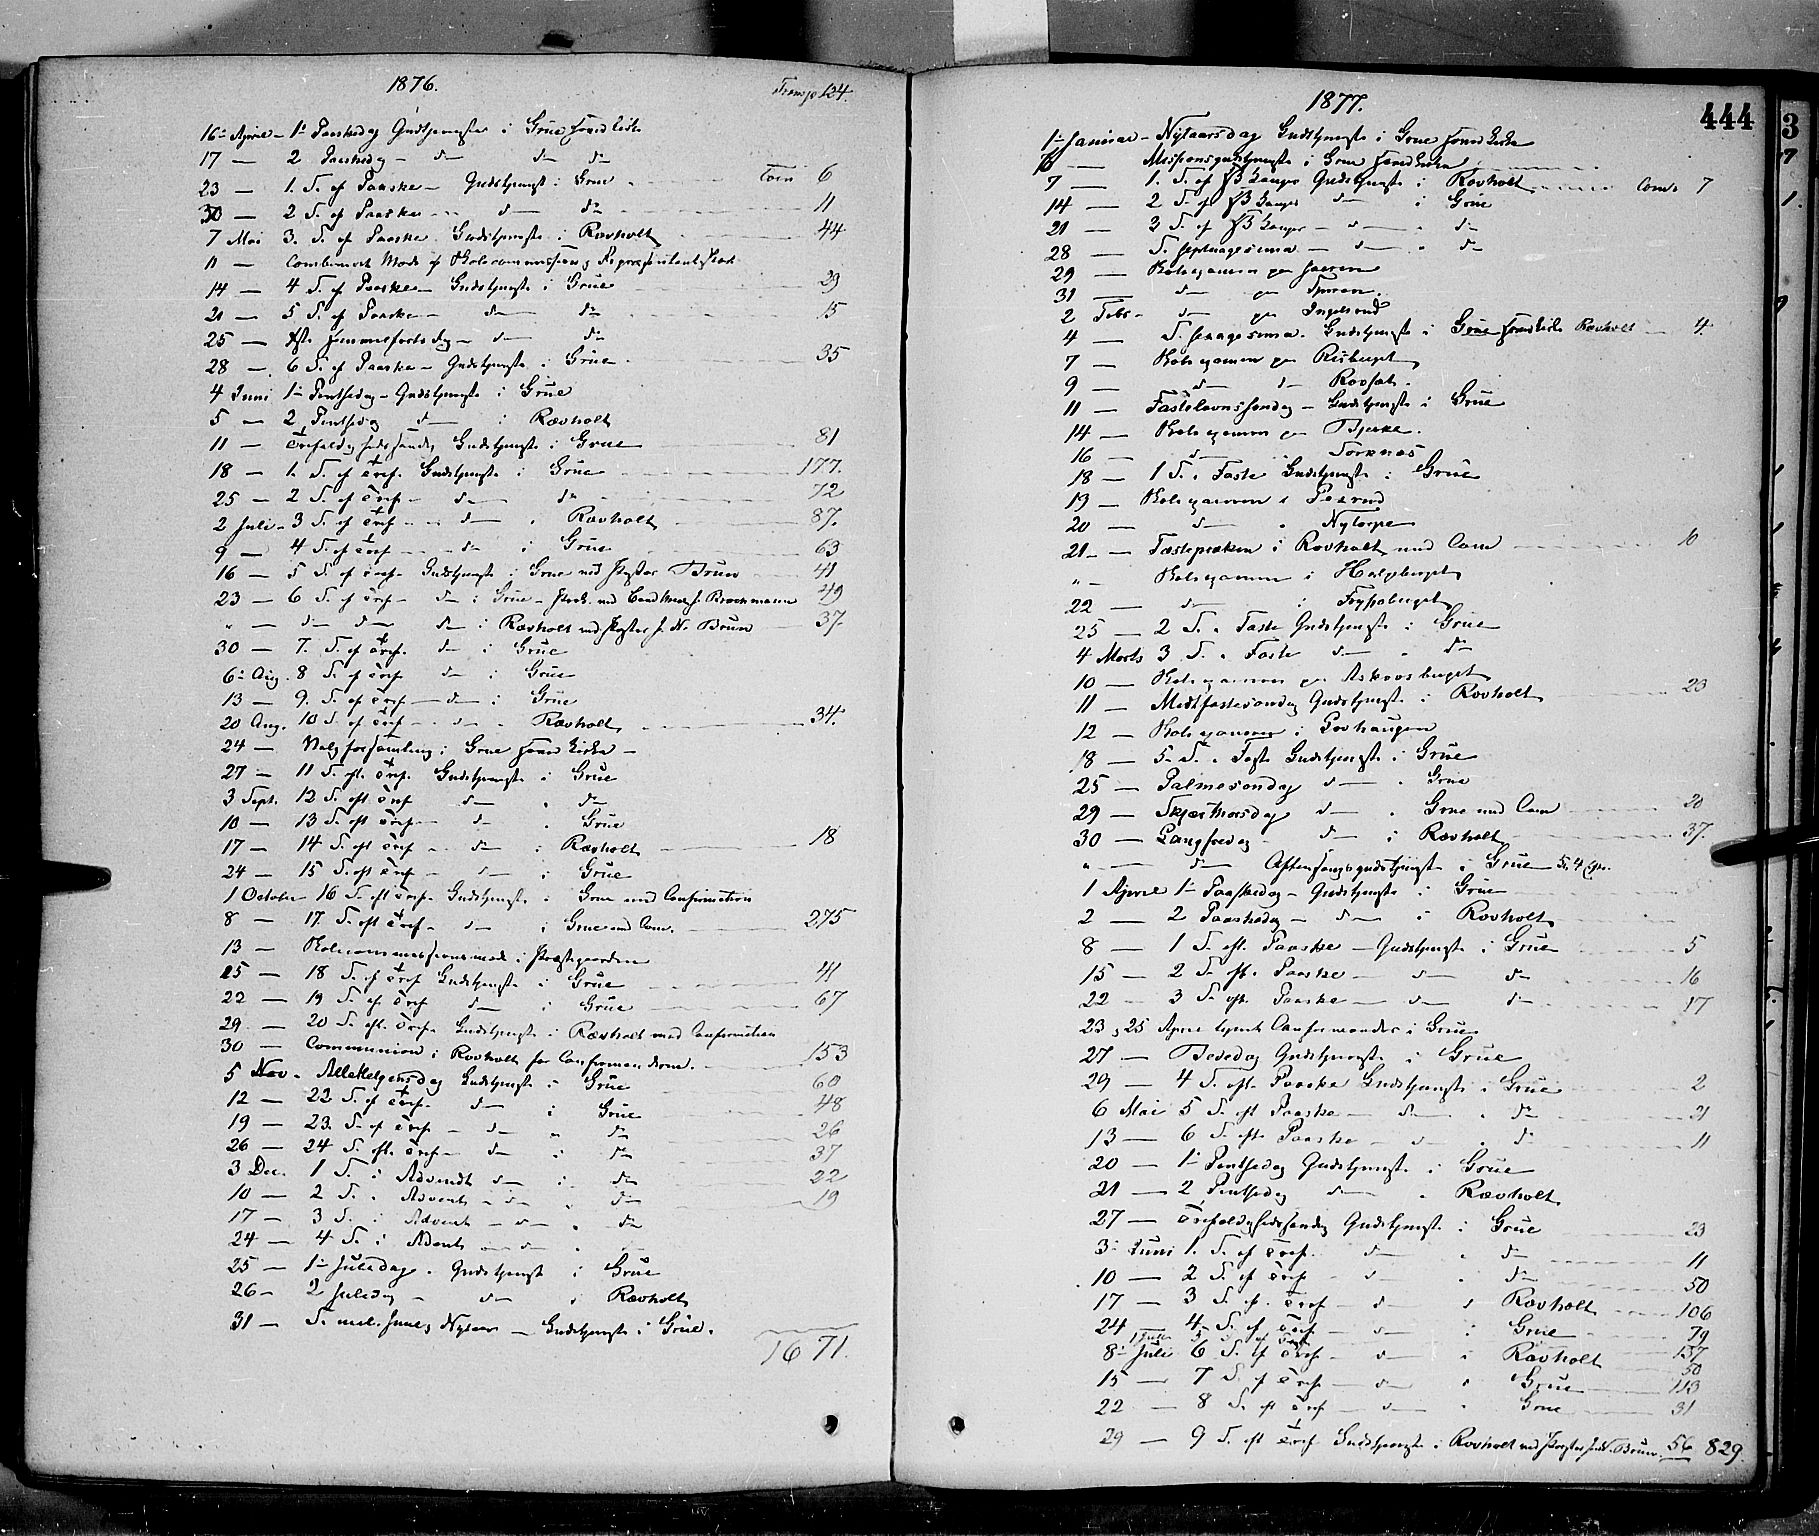 1876.
Transp. 124.
16de April – 1ste Paaskedag Gudstjeneste i Grue Hovedkirke
17 — 2 Paaskedag – do do do
23 — 1. S. ef Paaske – Gudstjenest i Grue Com 6
30 — 2 S. ef Paaske – do do 11
7 Mai 3. S. ef Paaske. Gudstjeneste i Rævholt 44
11 — Combineret Møde af Skolecommission og Repræsentantskab
14 — 4 S. ef Paaske – Gudstjeneste i Grue 29
21 — 5 S. ef Paaske – do do 15
25 — Christi Himmelfartsdag – do do
28 — 6 S. ef Paaske – Gudstjeneste i Grue 35
4 Juni 1ste Pintsedag – Gudstjeneste i Grue
5 — 2 Pintsedag do i Rævholt
11 — Trefoldighedssøndag Gudstjeneste i Grue 81
18 — 1. S. ef Tref. Gudstjeneste i Grue 177.
25 — 2 S. ef Tref – do do 72
2 Juli – 3 S. ef Tref – do . Rævholt 87.
9 — 4 S. ef Tref – do i Grue 63
16 — 5 S. ef Tref. Gudstjeneste i Grue ved Pastor Bruun 41
23 — 6 S. ef Tref – do i Grue – Præd. ved Cand. Brochmann 49
" — do do do i Rævholt ved Pastor J. N. Bruun 37.
30 — 7. S. ef Tref. do i Grue
6te Aug. 8 S. ef Tref do i Grue
13 — 9. S. ef Tref — do i Grue
20 Aug. 10 S. ef Tref – do . Rævholt 34.
24 — Valgforsamling i Grue Hovedkirke –
27 — 11 S. eft. Tref. Gudstjeneste i Grue
3 Sept. 12 S. eft Tref do . do
10 — 13 S. eft Tref – do . Grue
17 — 14 S. eft Tref – do i Rævholt 18
24 — 15 S. eft Tref – do i Grue
1 October 16 S. eft Tref. Gudstjeneste i Grue med Confirmation
8 — 17. S. eft Tref – do i Grue med Com. 275
13 — Skolecommissionsmøde i Præstegaarden
15 — 18 S. ef Tref Gudstjeneste i Grue 41
22 — 19 S. ef Tref do i Grue 67
29 — 20 S. eft. Tref. Gudstjeneste i Rævholt med Confirmation
30 — Communion i Rævholt for Confirmanderne. 153
5 Nov – Allehelgensdag Gudstjeneste i Grue 60
12 — 22 S. ef Tref. do i Grue 48
19 — 23. S. ef Tref – do " do 26
26 — 24 S. eft. Tref – do i do 37
3 Dec. 1 S. i Advendt do i do 22
10 — 2 S. i Advent – do . do 19
17 — 3 S. i Advent – do . do
24 — 4 S. i Advent – do .
25 — 1ste Juledag. Gudstjenest i Grue
26 – 2 Juledag – do i Rævholt
31 — S. mel. Juul og Nytaar – Gudstjeneste i Grue.
1671.
444
1877.
1ste Januar – Nytaarsdag Gudstjeneste i Grue Hovedkirke
Missionsgudstjeneste i Grue Hovedkirke
7 — 1. S. ef H3 Konger Gudstjeneste i Rævholt Com. 7
14 — 2 S. ef H3 Konger do i Grue
21 — 3 S. ef H3 Konger – do . do
28 — S. Septuagesima – do . do
29 — Skoleexamen paa
31 — do paa
2 Febr – do paa Ingelsrud
4 — S. Sexagesima. Gudstjeneste i Grue Hovedkirke Rævholt 4.
7 — Skoleexamen paa Risberget
9 — do do
11 — Fastelavnssøndag – Gudstjeneste i Grue
14 — Skoleexamen paa Bjerke.
16 — do Tornæs
18 — 1 S. i Faste Gudstjeneste i Grue
19 — Skoleexamen i
20 — do . Nytorpe
21 – — Fasteprædiken i Rævholt med Com 10
" – Skoleexamen i Halgberget
22 — do i
25 — 2 S. i Faste Gudstjeneste i Grue
4 Marts 3 S. i Faste do " do
10 — Skoleexamen paa Askoosberget
11 — Midtfastesøndag Gudstjeneste i Rævholt 23
12 — Skoleexamen i
18 — 5. S. i Faste Gudstjeneste i Grue
25 — Palmesøndag do . Grue
29 — Skjærthorsdag do . Grue med Com 20
30 — Langfredag do i Rævholt 37.
" — do Aftensangsgudstjeneste i Grue
1 April 1ste Paaskedag – Gudstjeneste i Grue
2 — 2 Paaskedag – do i Rævholt
8 — 1 S. eft. Paaske – Gudstjeneste i Grue 5
15 — 2 S. eft. Paaske – do do 16
22 — 3 S. eft. Paaske — do do 17
23 og 25 April Confirmander i Grue
27 — Bededag Gudstjeneste i Grue
29 — 4 S. eft. Paaske Gudstjeneste i Grue 2
6 Mai 5 S. eft Paaske – do . do 21
13 — 6 S. eft. Paaske – do . do 11
20 — 1ste Pintsedag Gudstjeneste i Grue
21 — 2 Pintsedag do . Rævholt
27 — Trefoldighedssøndag Gudstjeneste i Grue 23
3die Juni 1. S. ef Tref. do . do 11
10 — 2 S. ef Tref – do . do 50
17 — 3 S. ef. Tref – do i Rævholt 106
24 — 4 S. ef Tref – do i Grue 79
1 Juli 5 S. ef Tref
8de Juli 6 S. ef Tref – do i Rævholt 137
50
15 — 7 S. ef Tref – do . Grue 113
22 — 8 S. eft Tref – do . Grue 31
29 — 9 S. eft Tref Gudstjeneste i Rævholt ved Pastor J. N. Bruun. 56 829.